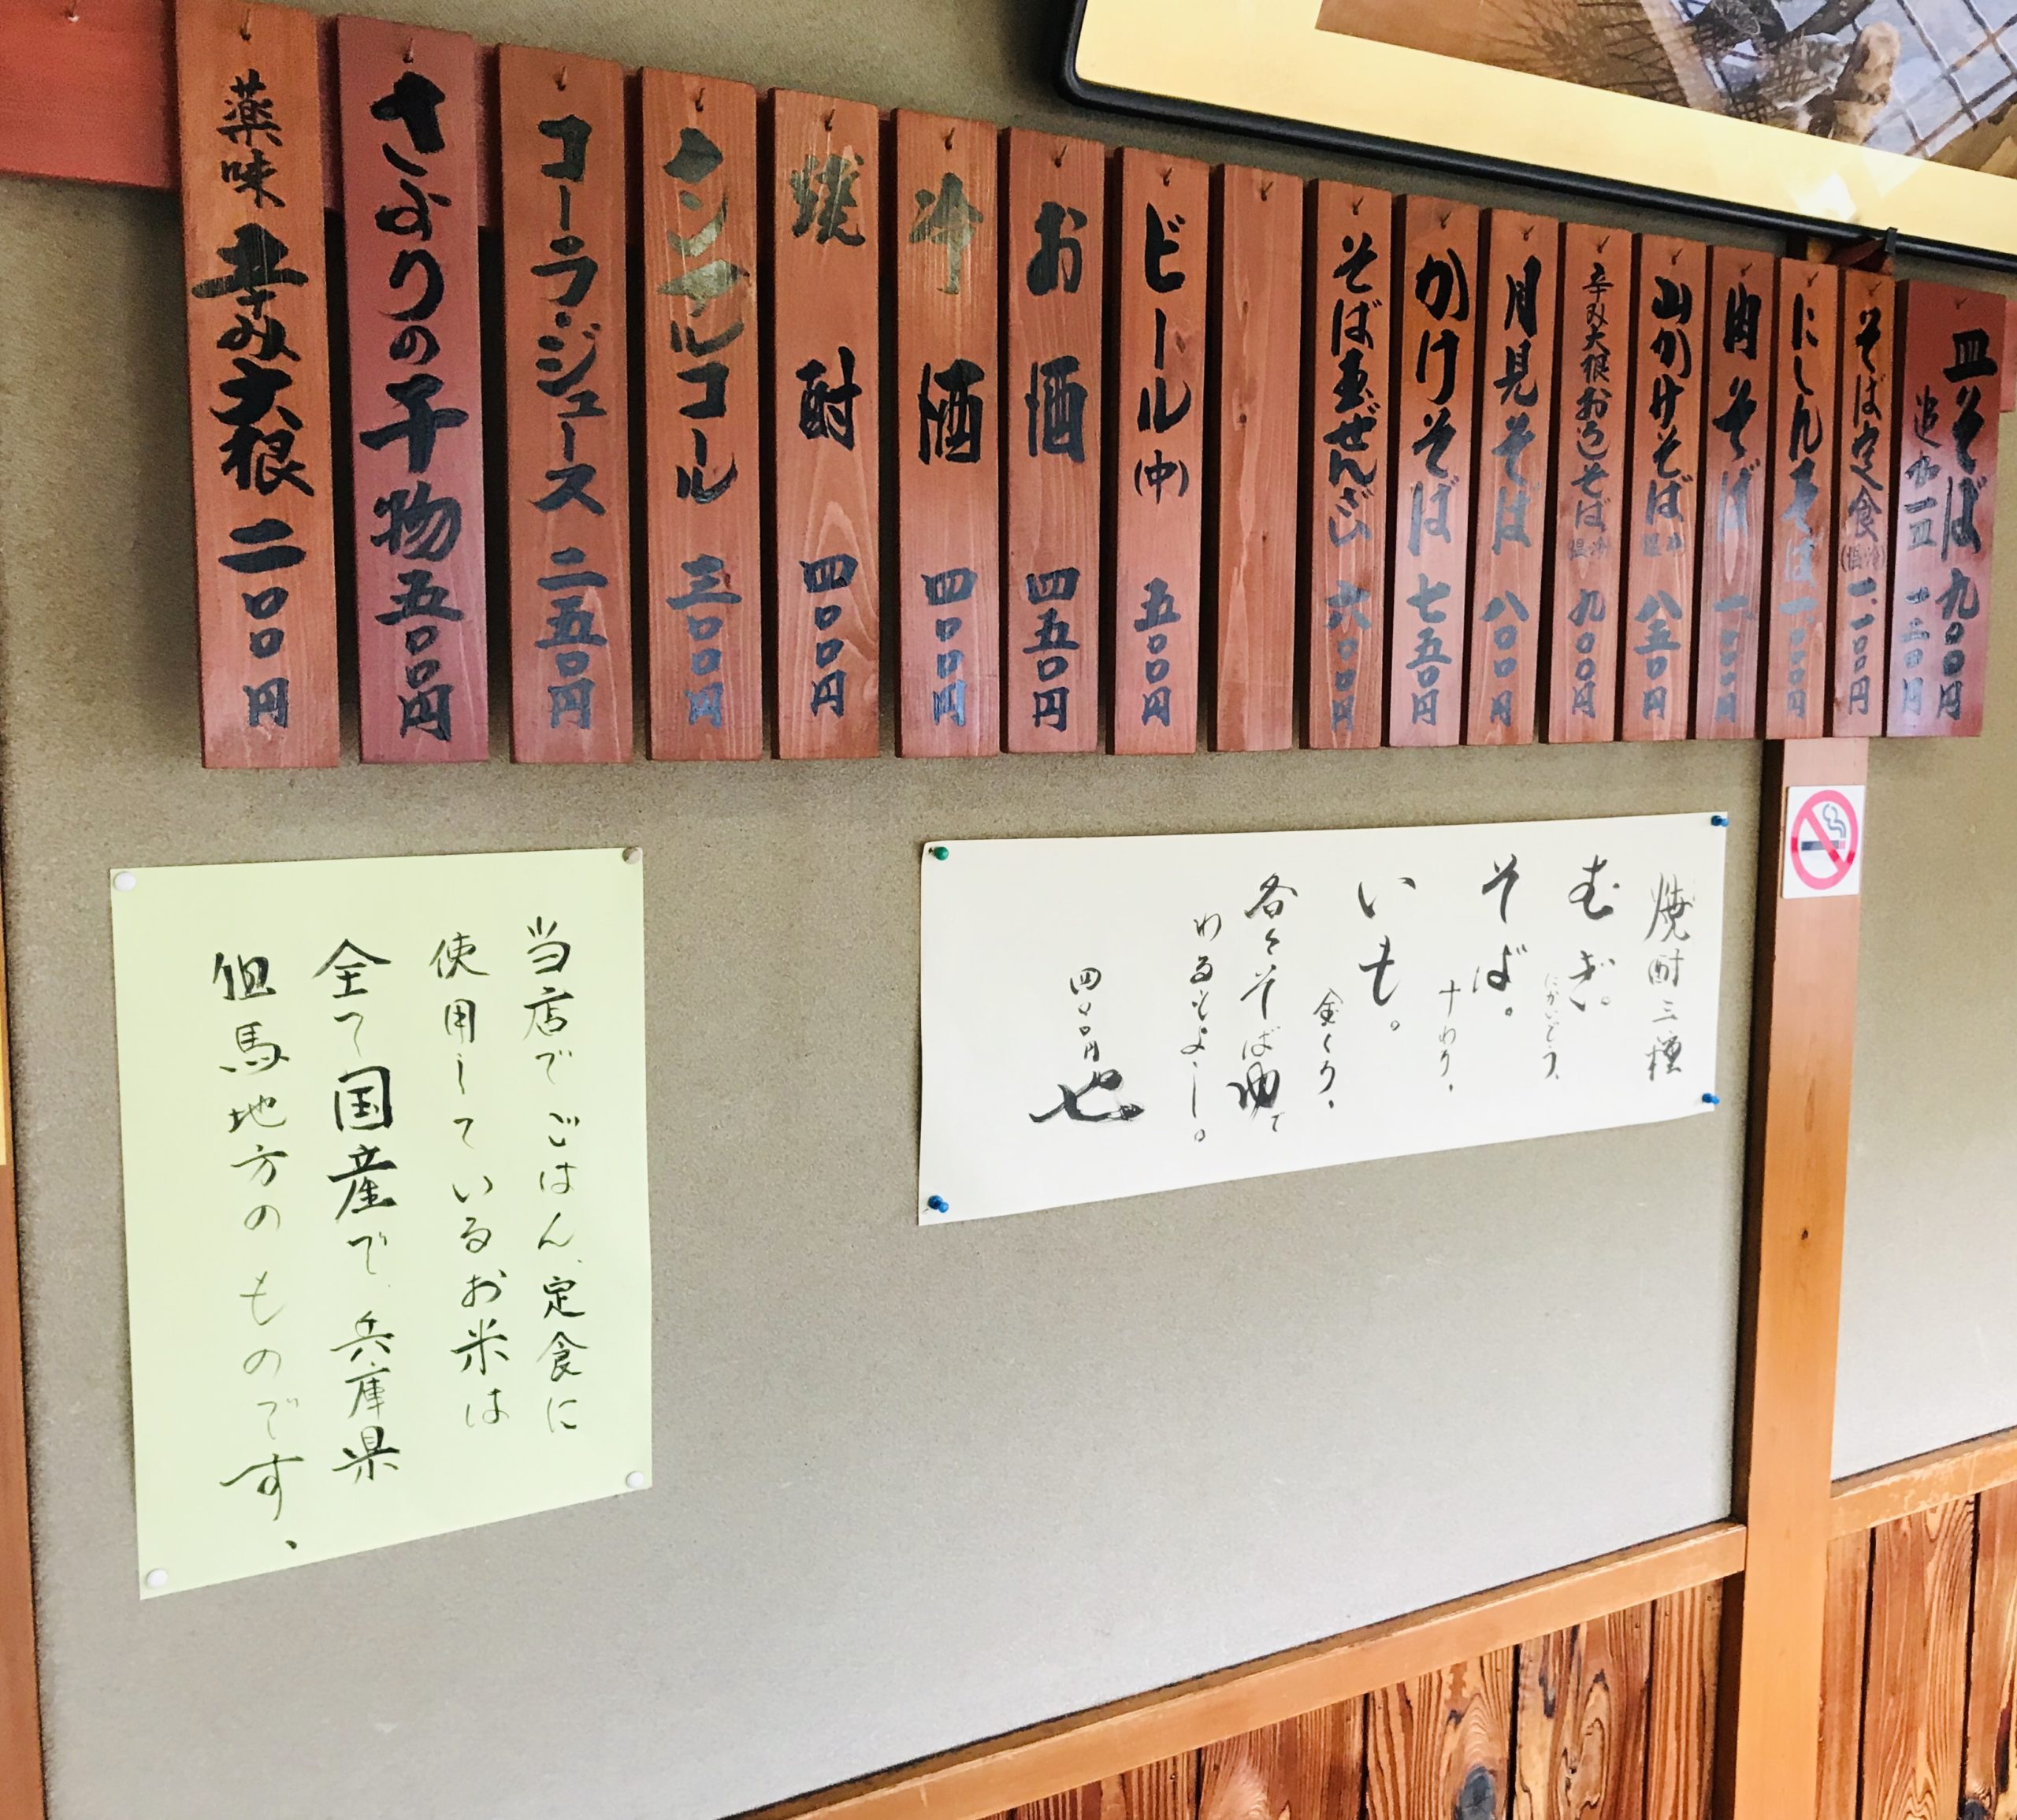 皿そば 九〇〇円
追加一皿 一五〇円
そば定食(温冷) 一、一〇〇円
にしんそば 一、〇〇〇円
肉そば 一、〇〇〇円
山かけそば 温冷 八五〇円
辛み大根おろしそば 温冷 九〇〇円
月見そば 八〇〇円
かけそば 七五〇円
そば玉ぜんざい 六〇〇円
ビール(中) 五〇〇円
お酒 四五〇円
冷酒 四〇〇円
焼酎 四〇〇円
ノンアルコール 三〇〇円
コーラ・ジュース 二五〇円
さよりの干物 五〇〇円
薬味 辛み大根 二〇〇円
焼酎三種
むぎ。
にかいどう、
そば。
十わり、
いも。
金くろ、
各々そば湯で
わるもよし。
四〇〇円也
当店でごはん、定食に
使用しているお米は
全て国産で、兵庫県
但馬地方のものです、